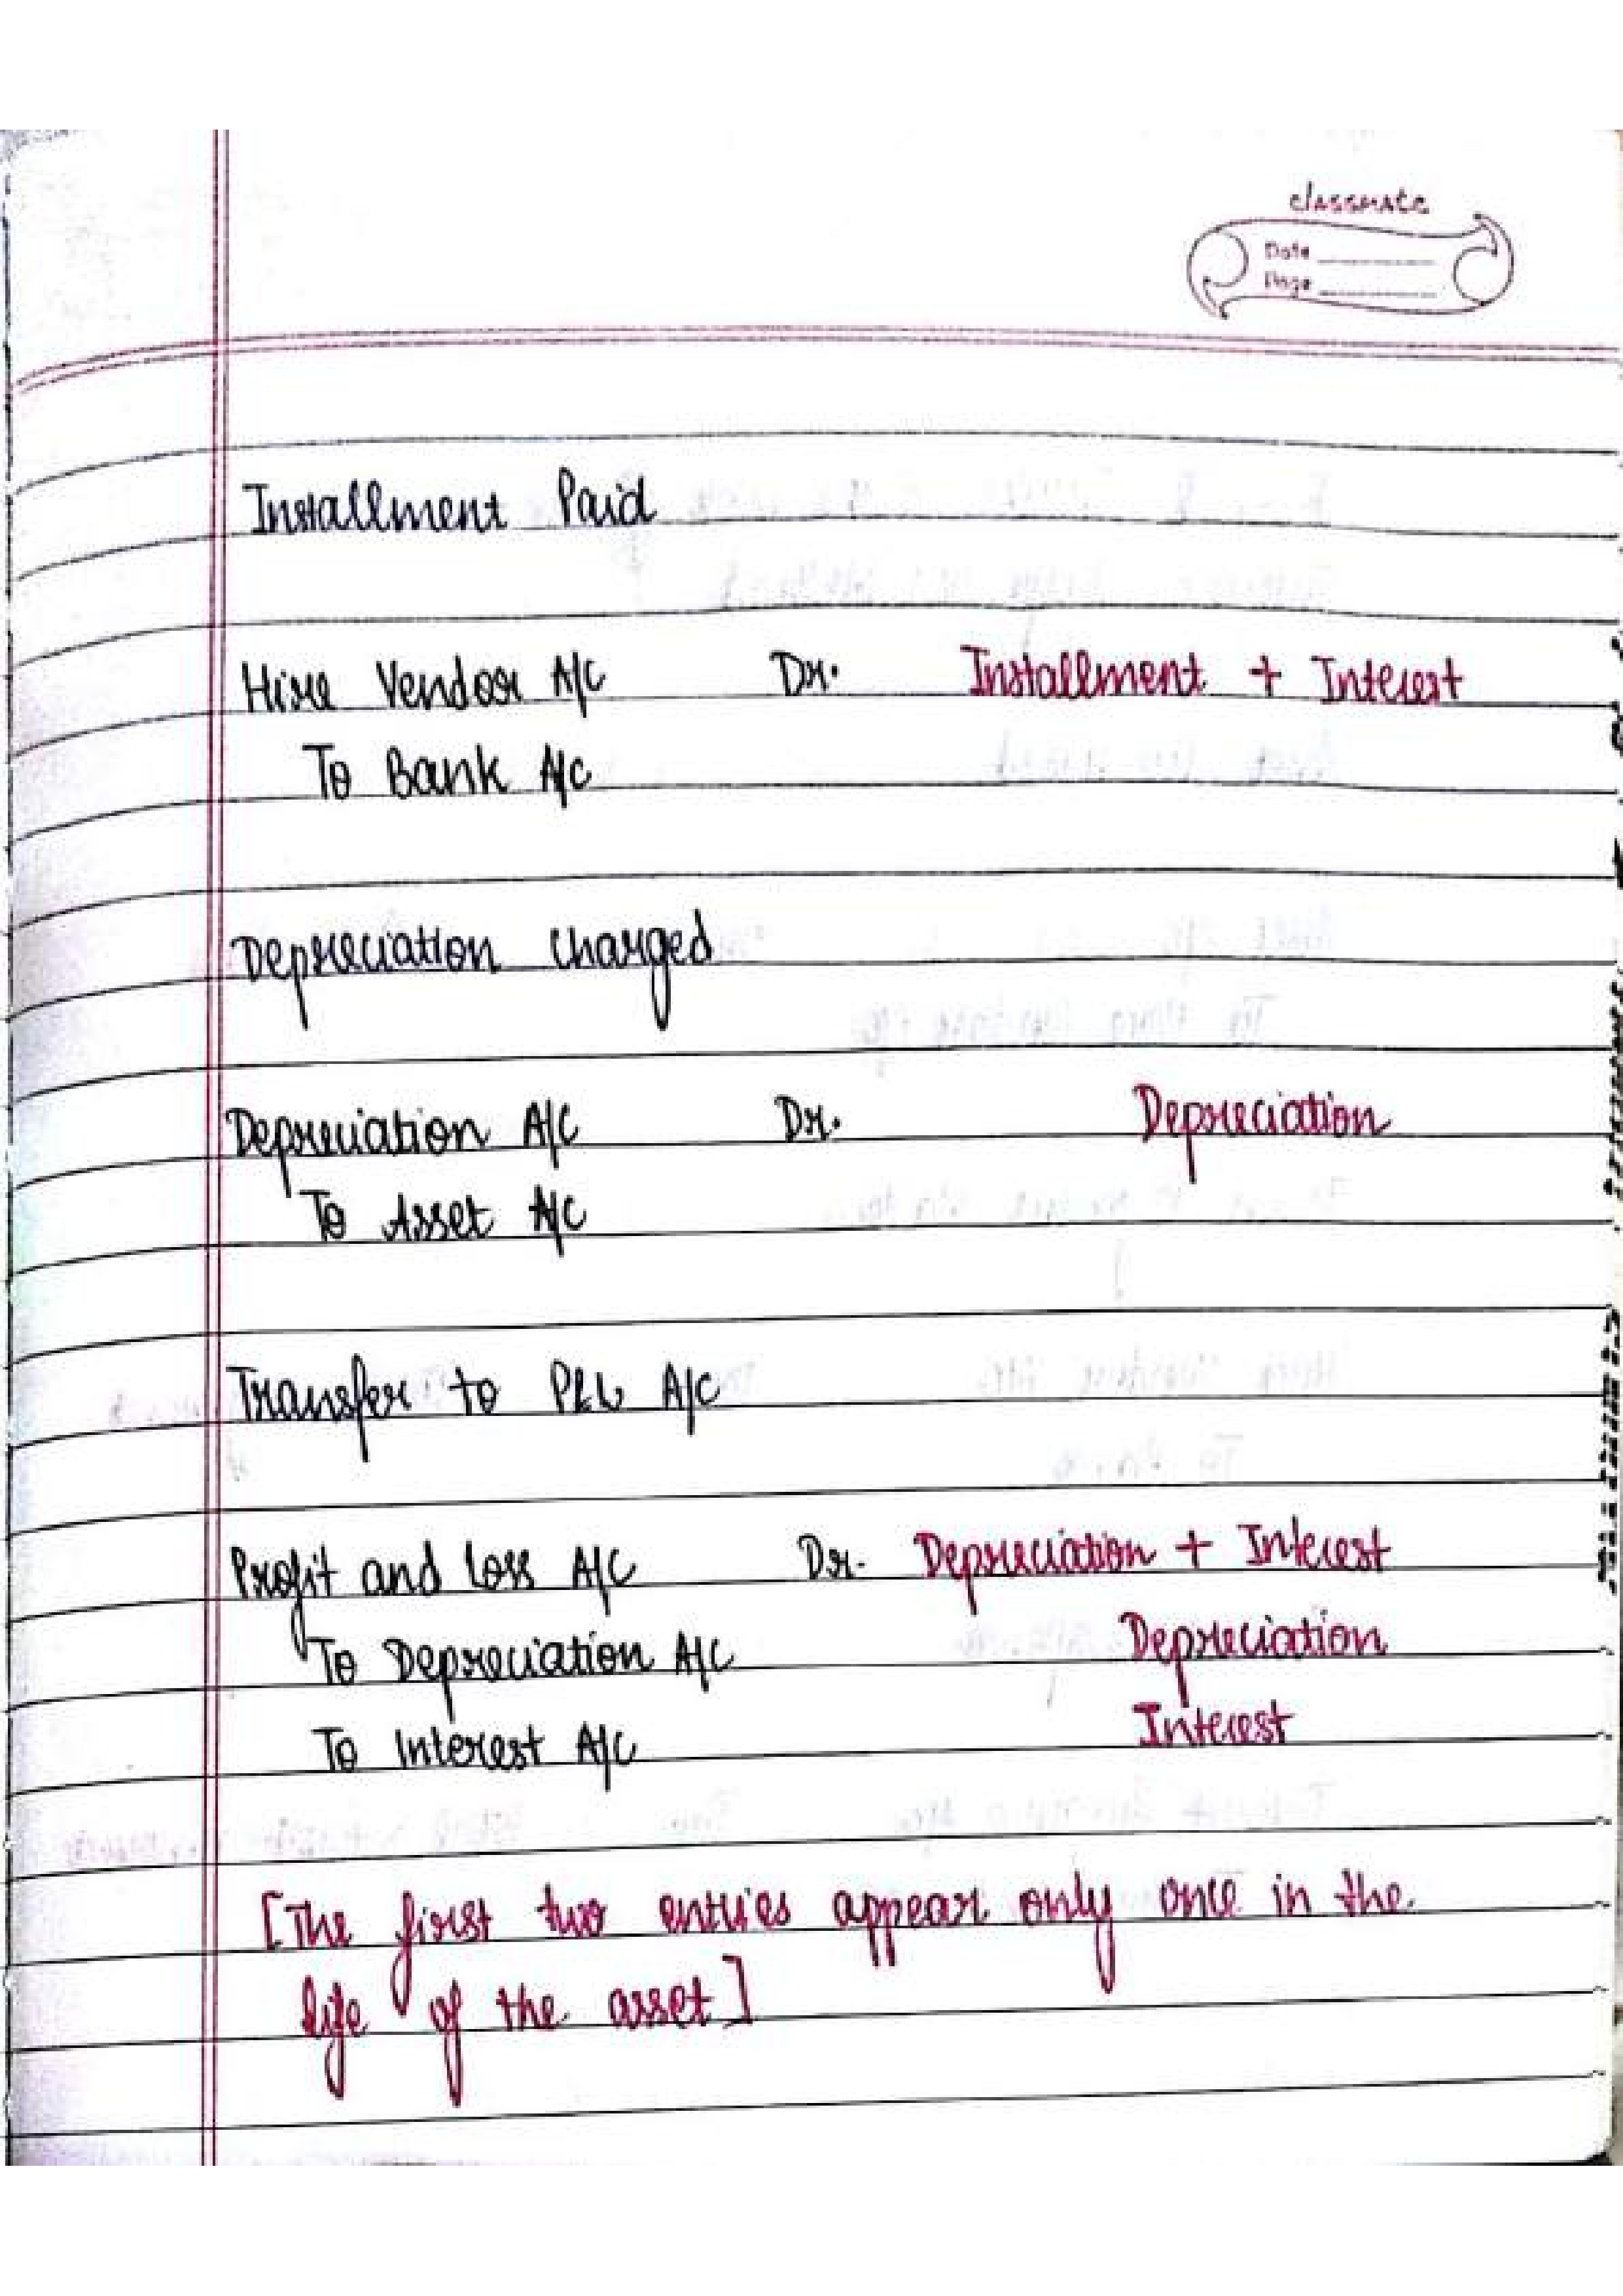 classmate
Date
Page
Installment Paid
Hire Vendor A/c Dr. Installment + Interest
To Bank A/c
Depreciation charged
Depreciation A/c Dr. Depreciation
To Asset A/c
Transfer to P&L A/c
Profit and Loss A/c Dr. Depreciation + Interest
To Depreciation A/c Depreciation
To Interest A/c Interest
[The first two entries appear only once in the
life of the asset]